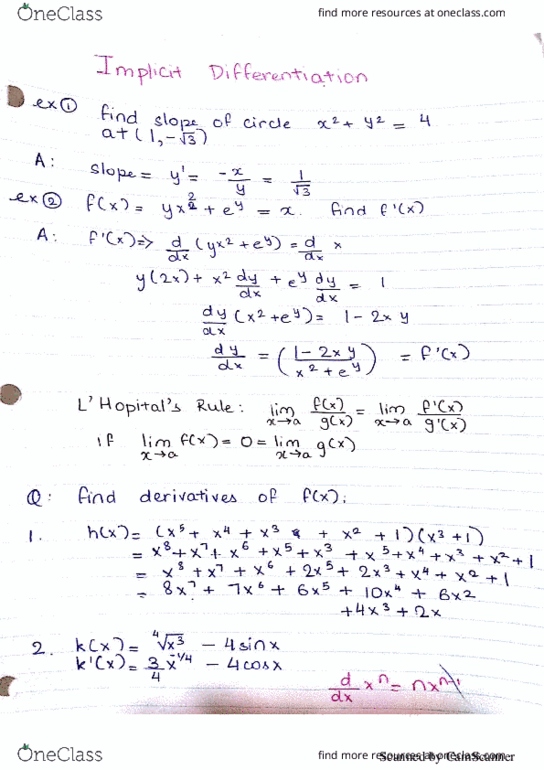 OneClass
find more resources at oneclass.com
Implicit Differentiation
ex① find slope of circle x² + y² = 4
at (1, -√3)
A: slope = y' = -x/y = 1/√3
ex② f(x) = yx² + e^y = x. find f'(x)
A: f'(x) => d/dx (yx² + e^y) = d/dx x
y(2x) + x² dy/dx + e^y dy/dx = 1
dy/dx (x² + e^y) = 1 - 2xy
dy/dx = (1 - 2xy / x² + e^y) = f'(x)
L'Hopital's Rule: lim x→a f(x)/g(x) = lim x→a f'(x)/g'(x)
if lim x→a f(x) = 0 = lim x→a g(x)
Q: find derivatives of f(x);
1. h(x) = (x⁵ + x⁴ + x³ + x² + 1)(x³ + 1)
= x⁸ + x⁷ + x⁶ + x⁵ + x³ + x⁵ + x⁴ + x³ + x² + 1
= x⁸ + x⁷ + x⁶ + 2x⁵ + 2x³ + x⁴ + x² + 1
= 8x⁷ + 7x⁶ + 6x⁵ + 10x⁴ + 6x2
+ 4x³ + 2x
2. k(x) = ⁴√x³ - 4sinx
k'(x) = 3/4 x^-1/4 - 4cosx
d/dx xⁿ = nxⁿ⁻¹
OneClass
find more resources at oneclass.com
Scanned by CamScanner